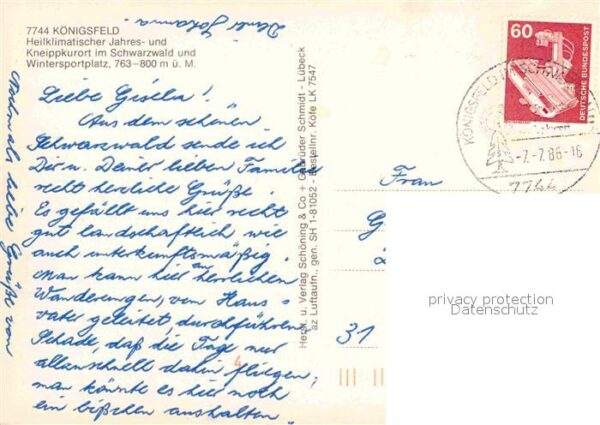 7744 KÖNIGSFELD
Heilklimatischer Jahres- und
Kneippkurort im Schwarzwald und
Wintersportplatz, 763–800 m ü. M.
Liebe Gisela!
Aus dem schönen
Schwarzwald sende ich
Dir u. Deiner lieben Familie
recht herzliche Grüße.
Es gefällt uns hier recht
gut landschaftlich wie
auch unterkunftsmäßig.
Man kann hier herrlichen
Wanderungen, vom Haus-
vater geleitet, durchführen.
Schade, daß die Tage nur
allzuschnell dahin fliegen;
man könnte es hier noch
ein bißchen aushalten.
Nochmals liebe Grüße von
Deiner Johanna
Herst. u. Verlag Schöning & Co + Gebrüder Schmidt - Lübeck
az Luftaufn., gen. SH 1-81052 - Bestellnr. Köfe LK 7547
60
DEUTSCHE BUNDESPOST
KÖNIGSFELD
-7.7.86-16
7744
Frau
G
31
privacy protection
Datenschutz